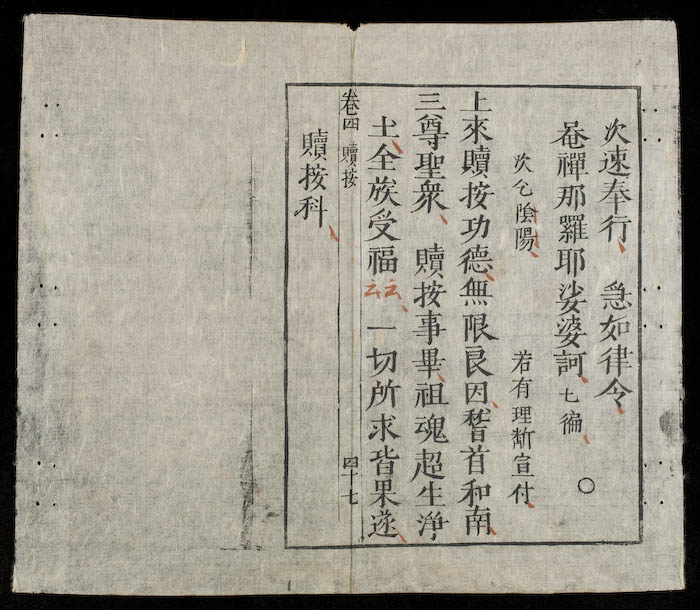 次速奉行 急如律令
唵禪那羅耶娑婆訶 七徧 ○
次陰陽 若有理断宣付
上來贖按功德無限良因稽首和南
三尊聖衆 贖按事畢祖魂超生淨
土全族受福云云一切所求皆果遂
卷四 贖按 四十七
贖按科